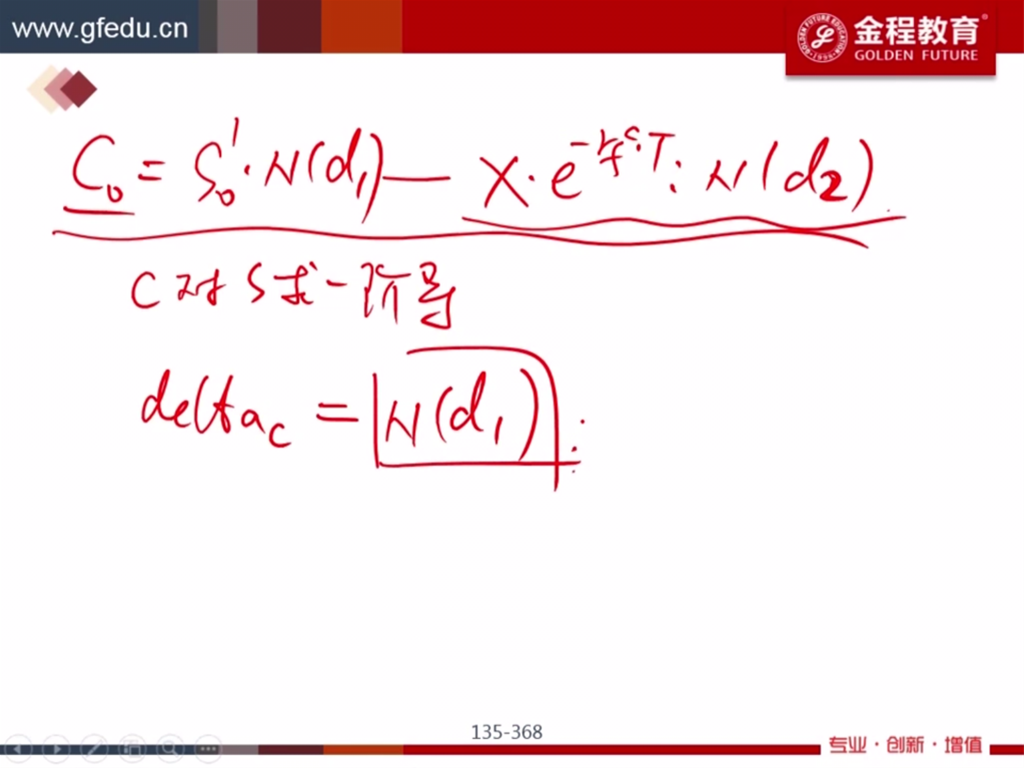 www.gfedu.cn
金程教育
GOLDEN FUTURE
C₀ = S₀¹·N(d₁) — X·e^(-r_f^c·T)·N(d₂)
C对S求一阶导
delta_c = N(d₁)
135-368
专业·创新·增值